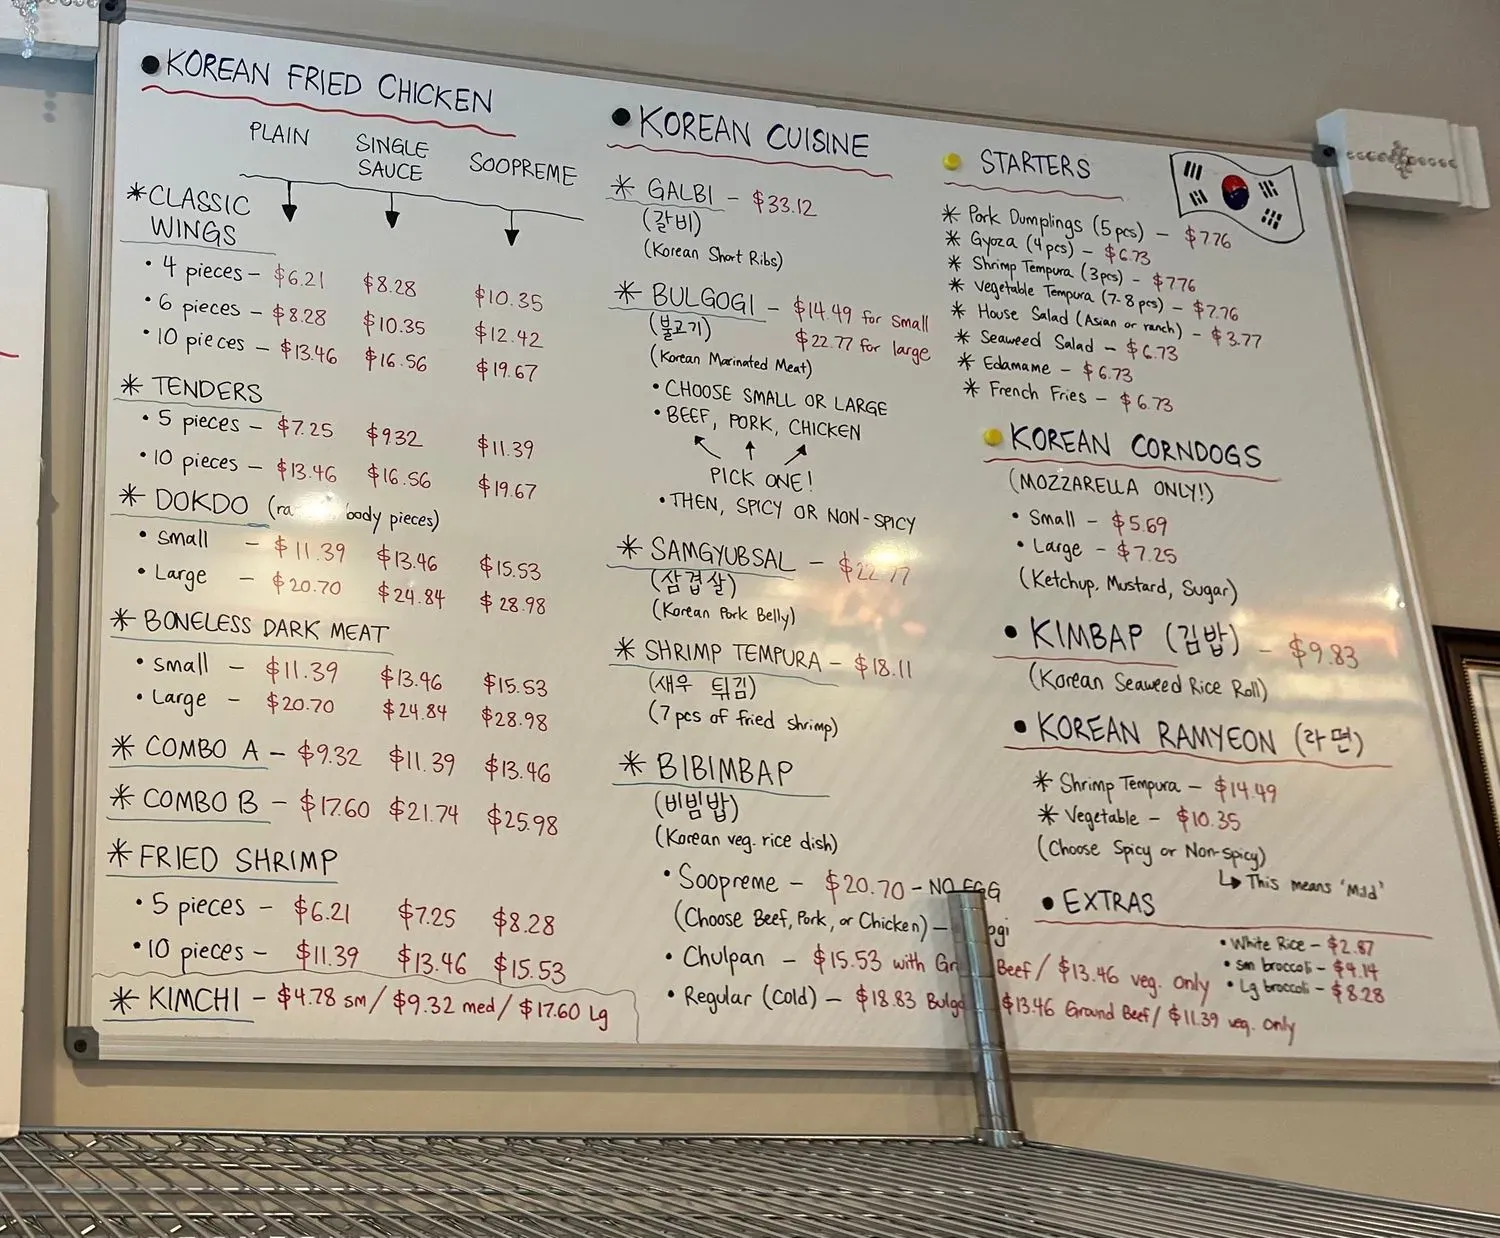 • KOREAN FRIED CHICKEN
PLAIN SINGLE SAUCE SOOPREME
* CLASSIC WINGS
• 4 pieces - $6.21 $8.28 $10.35
• 6 pieces - $8.28 $10.35 $12.42
• 10 pieces - $13.46 $16.56 $19.67
* TENDERS
• 5 pieces - $7.25 $932 $11.39
• 10 pieces - $13.46 $16.56 $19.67
* DOKDO body pieces)
• small - $11.39 $13.46 $15.53
• Large - $20.70 $24.84 $28.98
* BONELESS DARK MEAT
• small - $11.39 $13.46 $15.53
• Large - $20.70 $24.84 $28.98
* COMBO A - $9.32 $11.39 $13.46
* COMBO B - $17.60 $21.74 $25.98
* FRIED SHRIMP
• 5 pieces - $6.21 $7.25 $8.28
• 10 pieces - $11.39 $13.46 $15.53
* KIMCHI - $4.78 sm/ $9.32 med/ $17.60 Lg
• KOREAN CUISINE
* GALBI - $33.12
(갈비)
(Korean Short Ribs)
* BULGOGI - $14.49 for small
(불고기) $22.77 for large
(Korean Marinated Meat)
• CHOOSE SMALL OR LARGE
• BEEF, PORK, CHICKEN
PICK ONE!
• THEN, SPICY OR NON-SPICY
* SAMGYUBSAL - $22.77
(삼겹살)
(Korean Pork Belly)
* SHRIMP TEMPURA - $18.11
(새우 튀김)
(7 pcs of fried shrimp)
* BIBIMBAP
(비빔밥)
(Korean veg. rice dish)
• Soopreme - $20.70 - NO EGG
(Choose Beef, Pork, or Chicken) -
• Chulpan - $15.53 with Beef/ $13.46 veg. only
• Regular (cold) - $18.83 $13.46 Ground Beef/ $11.39 veg. only
• STARTERS
* Pork Dumplings (5 pcs) - $7.76
* Gyoza (4 pcs) - $6.73
* Shrimp Tempura (3 pcs) - $776
* Vegetable Tempura (7-8 pcs) - $7.76
* House Salad (Asian or ranch) - $3.77
* Seaweed Salad - $6.73
* Edamame - $6.73
* French Fries - $6.73
• KOREAN CORNDOGS
(MOZZARELLA ONLY!)
• Small - $5.69
• Large - $7.25
(Ketchup, Mustard, Sugar)
• KIMBAP (김밥) - $9.83
(Korean Seaweed Rice Roll)
• KOREAN RAMYEON (라면)
* Shrimp Tempura - $14.49
* Vegetable - $10.35
(Choose Spicy or Non-Spicy)
↳ This means 'Mild'
• EXTRAS
• White Rice - $2.87
• sm broccoli - $4.14
• Lg broccoli - $8.28